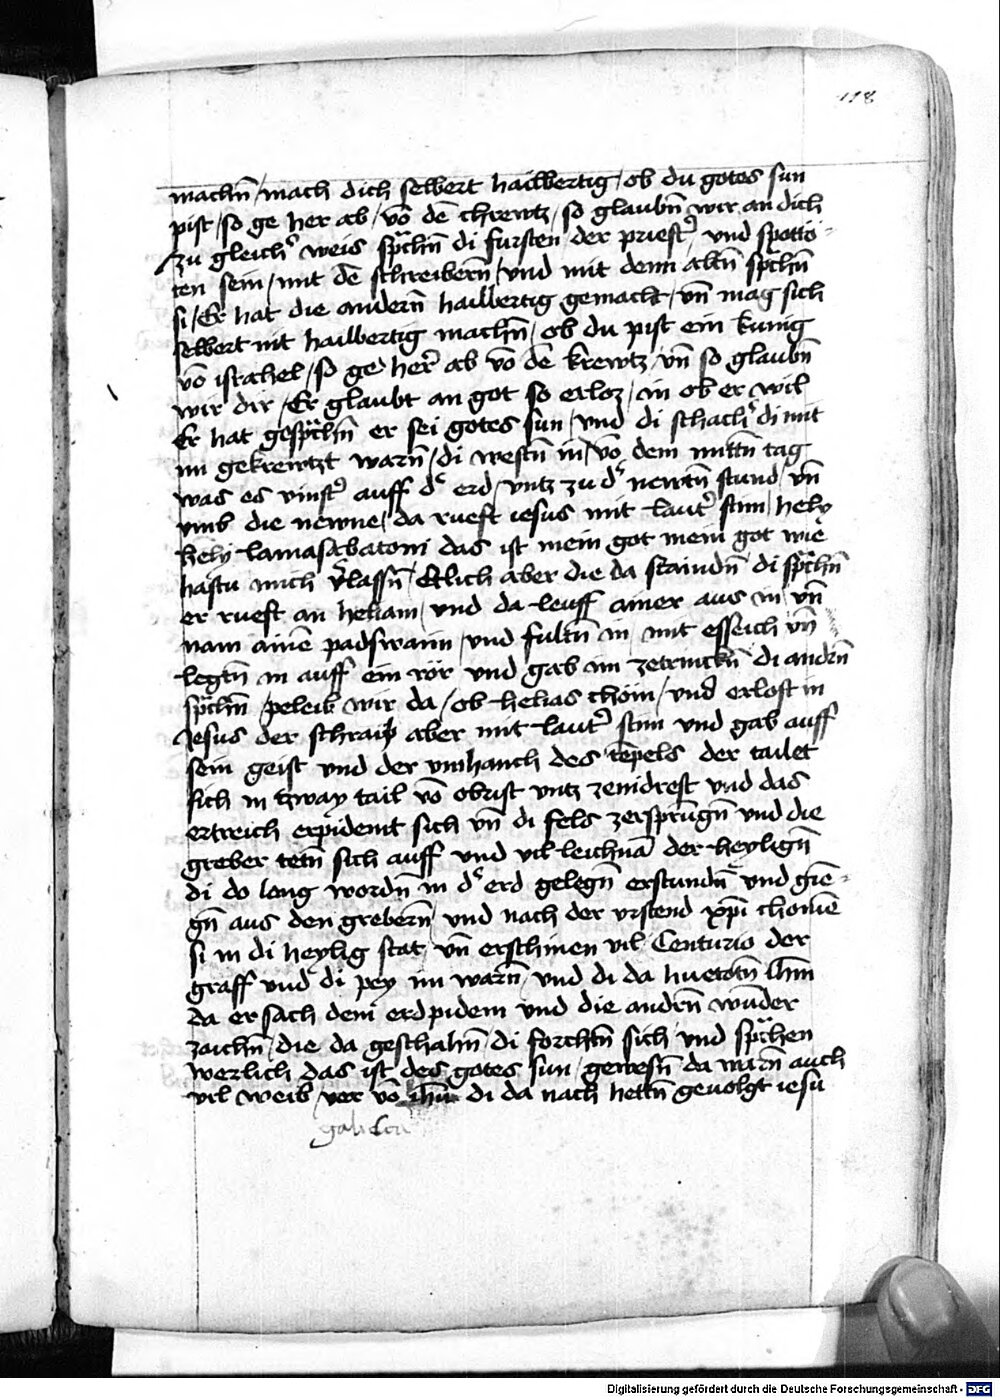 118
machn̄ / mach dich selbert hailbertig / ob du gotes sun
pist / so ge her ab / vō dē chrewtz / so glaubn̄ wir an dich
zu gleichˀ weis sprˀchn̄ di fursten der priestˀ / und spotto-
ten sein / mit dē schreibern̄ / vnd mit denn altn̄ sprˀchn̄
si / Er hat die andern̄ hailbertig gemacht / vn̄ mag sich
selbert nit hailbertig machn̄ / ob du pist ein kunig
vō israhel / so ge herˀ ab vō dē krewtz / vn̄ so glaubn̄
wir dir / Er glaubt an got so erloz / in ob er wil
Er hat gesprˀchn̄ er sei gotes sun / vnd di schachˀ di mit
im gekrewtzt warn̄ / di westn̄ in / vō dem mittn̄ tag
was es vinstˀ auff dˀ erd / vntz zu dˀ newtn̄ stund / vn̄
vmb die newne / da rueft iesus mit lautˀ stim / hely
hely lamasabatoni das ist mein got mein got wie
hastu mich vˀlassn̄ / Etlich aber die da staindn̄ di sprˀchn̄
er rueft an heliam / vnd da leuff ainer aus in / vn̄
nam ainē padswamm / vnd fultn̄ in / mit esseich vn̄
legtn̄ in auff ein rör vnd gab im zetrinckn̄ di andrn̄
sprˀchn̄ / peleib wir da / ob helias chöm / vnd erlost in
Jesus der schraib aber mit lautˀ stim vnd gab auff
sein geist vnd der vmhanch des tēpels der tailet
sich in tzway tail vō obrist vntz zenidrest vnd das
ertreich erpidemt sich vn̄ di fels zersprungn̄ vnd die
greber tetn̄ sich auff vnd vil leichnā der heylign̄
di do lang wordn̄ in dˀ erd gelegn̄ erstundn̄ vnd giē-
gn̄ aus den grebern̄ / vnd nach der vrstend xp̄i chomē
si in di heylig stat / vn̄ erschinen vil Centurio der
graff vnd di pey im warn̄ / vnd di da huetotn̄ ih̄m
da er sach dem erdpidem vnd die andrn̄ wunder
zaichn̄ / die da geschahn̄ / di forchtn̄ sich / vnd sprˀchen
werlich das ist des gotes sun / gewesn̄ da warn̄ auch
vil weib / ver vō ih̄m di da nach hettn̄ geuolgt iesu
galilea
Digitalisierung gefördert durch die Deutsche Forschungsgemeinschaft - DFG